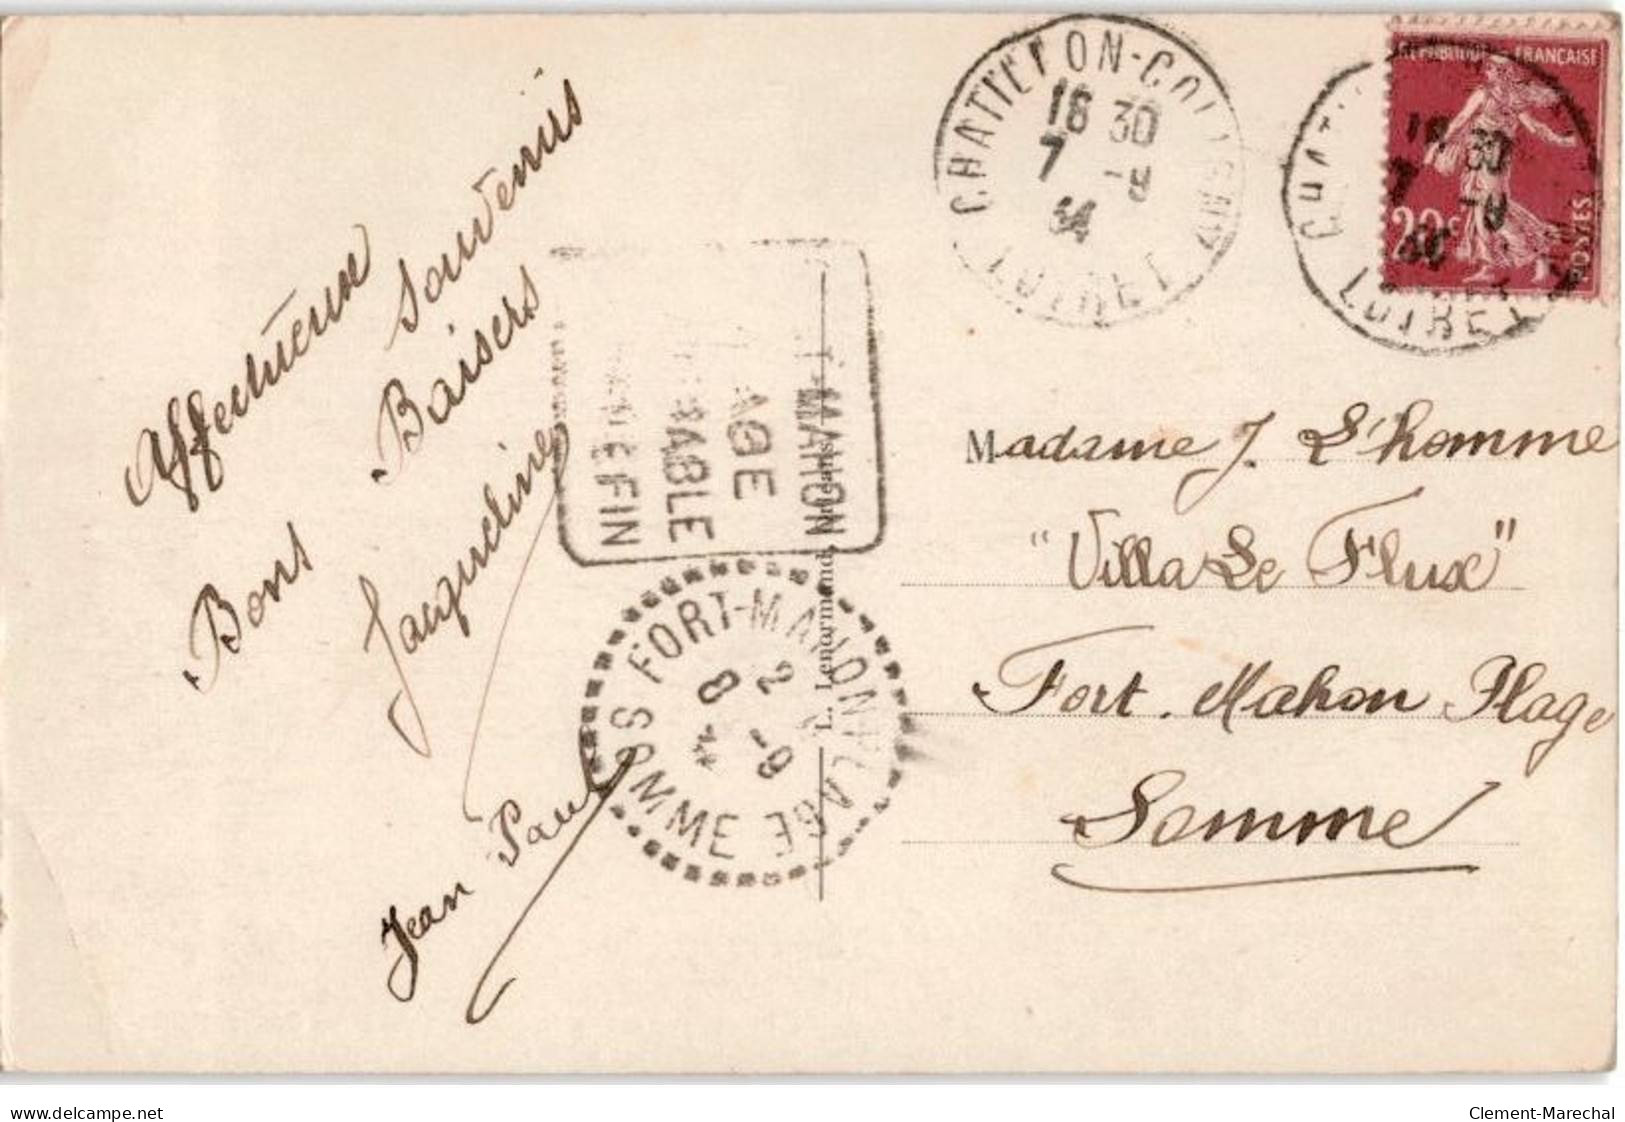 Affectueux
Souvenirs
Bons
Baisers
Jacqueline
Jean Paul
CHATILLON-COLIGNY
18 30
7 -9
34
LOIRET
RÉPUBLIQUE FRANÇAISE
20c
POSTES
18 30
7 -9
LOIRET
MAHON
AGE
ABLE
FIN
FORT-MAHON-PLAGE
2
8 -9
34
SOMME
L. Lenormand, Orléans
Madame J. L'homme
"Villa Le Flux"
Fort. Mahon Plage
Somme
delcampe.net
Clement-Marechal